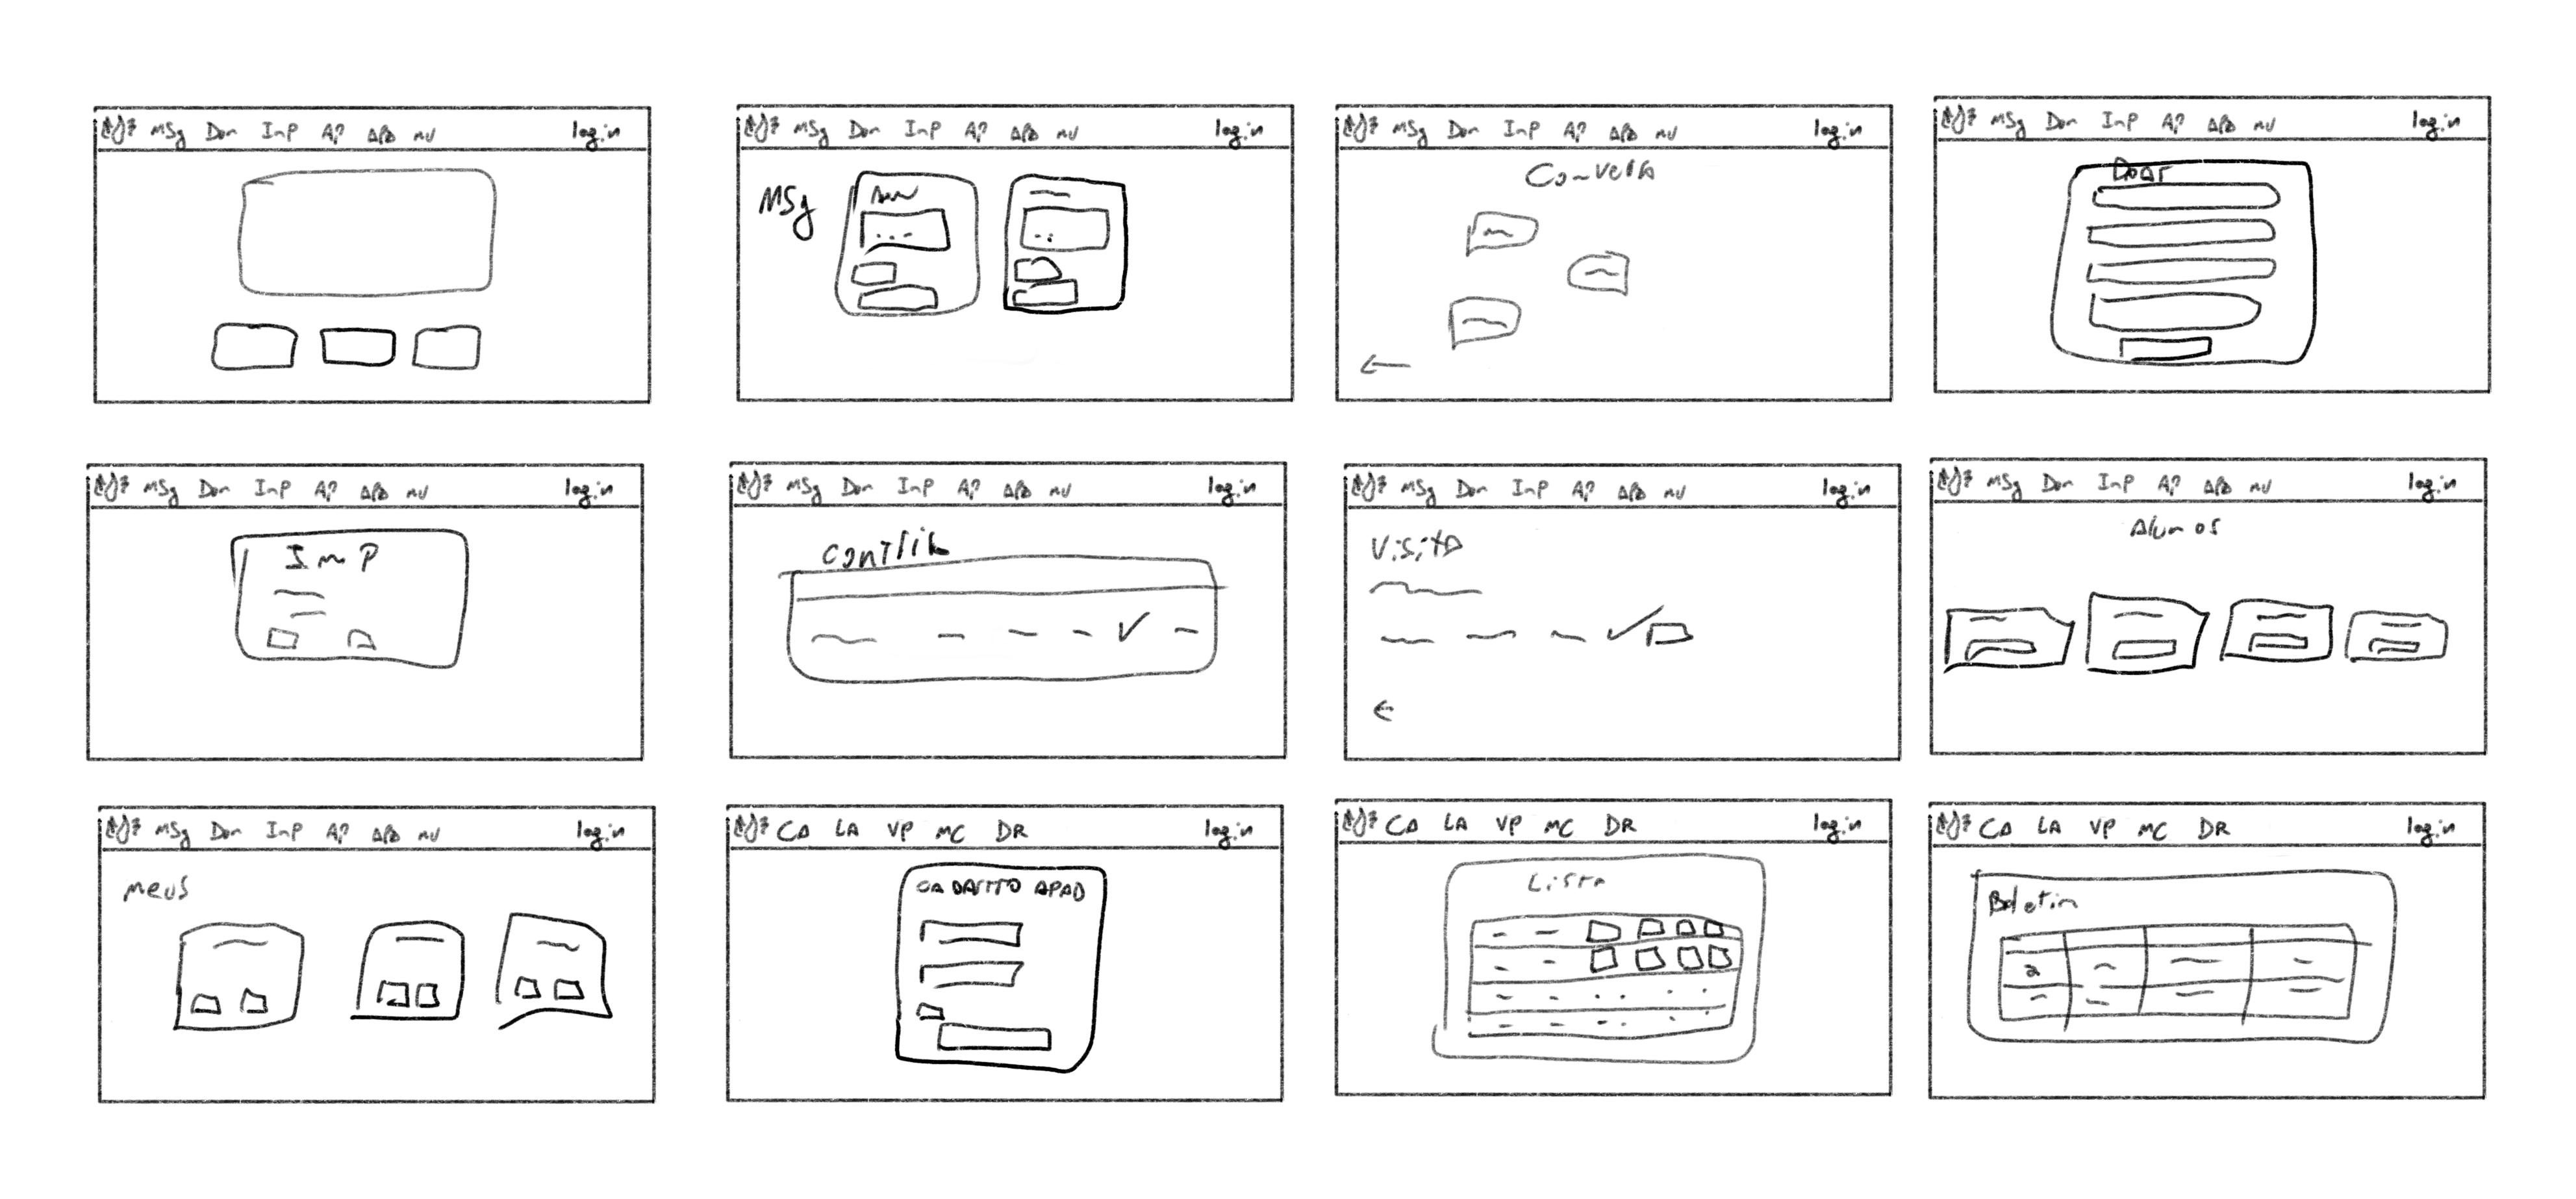 MSg Don InP AP APD MU login
MSg Don InP AP APD MU login
MSg
MSg Don InP AP APD MU login
Conversa
MSg Don InP AP APD MU login
Doar
MSg Don InP AP APD MU login
ImP
MSg Don InP AP APD MU login
Contrib
MSg Don InP AP APD MU login
Visita
MSg Don InP AP APD MU login
Alunos
MSg Don InP AP APD MU login
Meus
CA LA VP MC DR login
CADASTRO APAD
CA LA VP MC DR login
Lista
CA LA VP MC DR login
Boletim